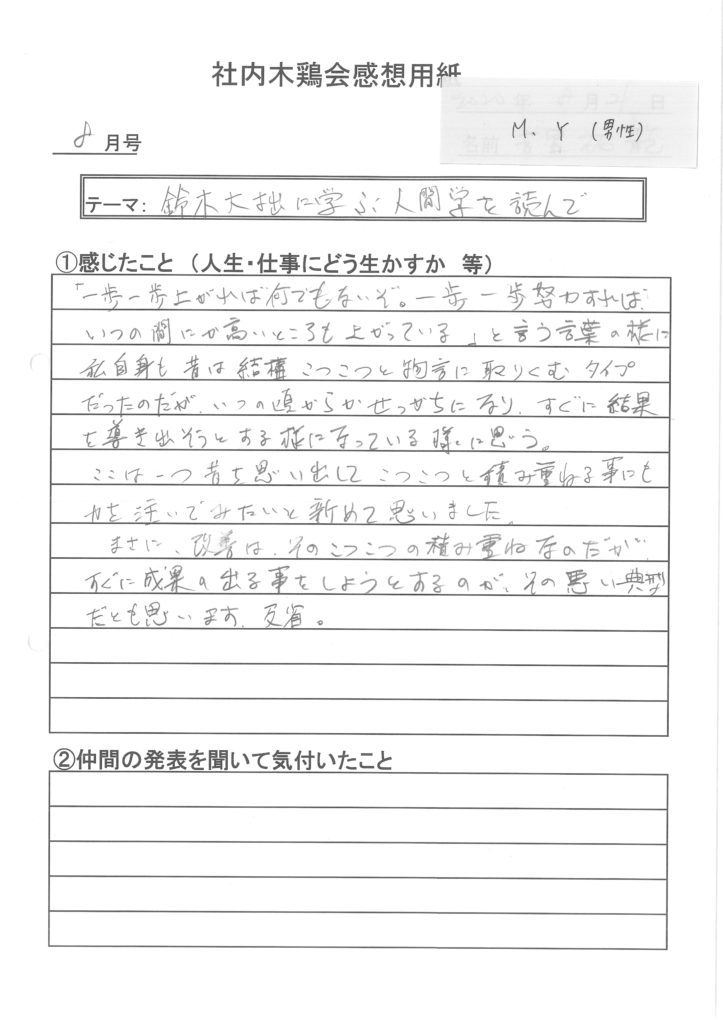 社内木鶏会感想用紙
2020年 8月21日
M、Y (男性)
名前
8月号
テーマ: 鈴木大拙に学ぶ人間学を読んで
①感じたこと (人生・仕事にどう生かすか 等)
「一歩一歩上がれば何でもないぞ。一歩一歩努力すれば、
いつの間にか高いところも上がっている」と言う言葉の様に
私自身も昔は結構こつこつと物言に取りくむタイプ
だったのだが、いつの頃からかせっかちになり、すぐに結果
を導き出そうとする様になっている様に思う。
ここは一つ昔を思い出してこつこつと積み重ねる事にも
力を注いでみたいと新めて思いました。
まさに、改善は、そのこつこつの積み重ねなのだが、
すぐに成果の出る事をしようとするのが、その悪い典型
だとも思います。反省。
②仲間の発表を聞いて気付いたこと